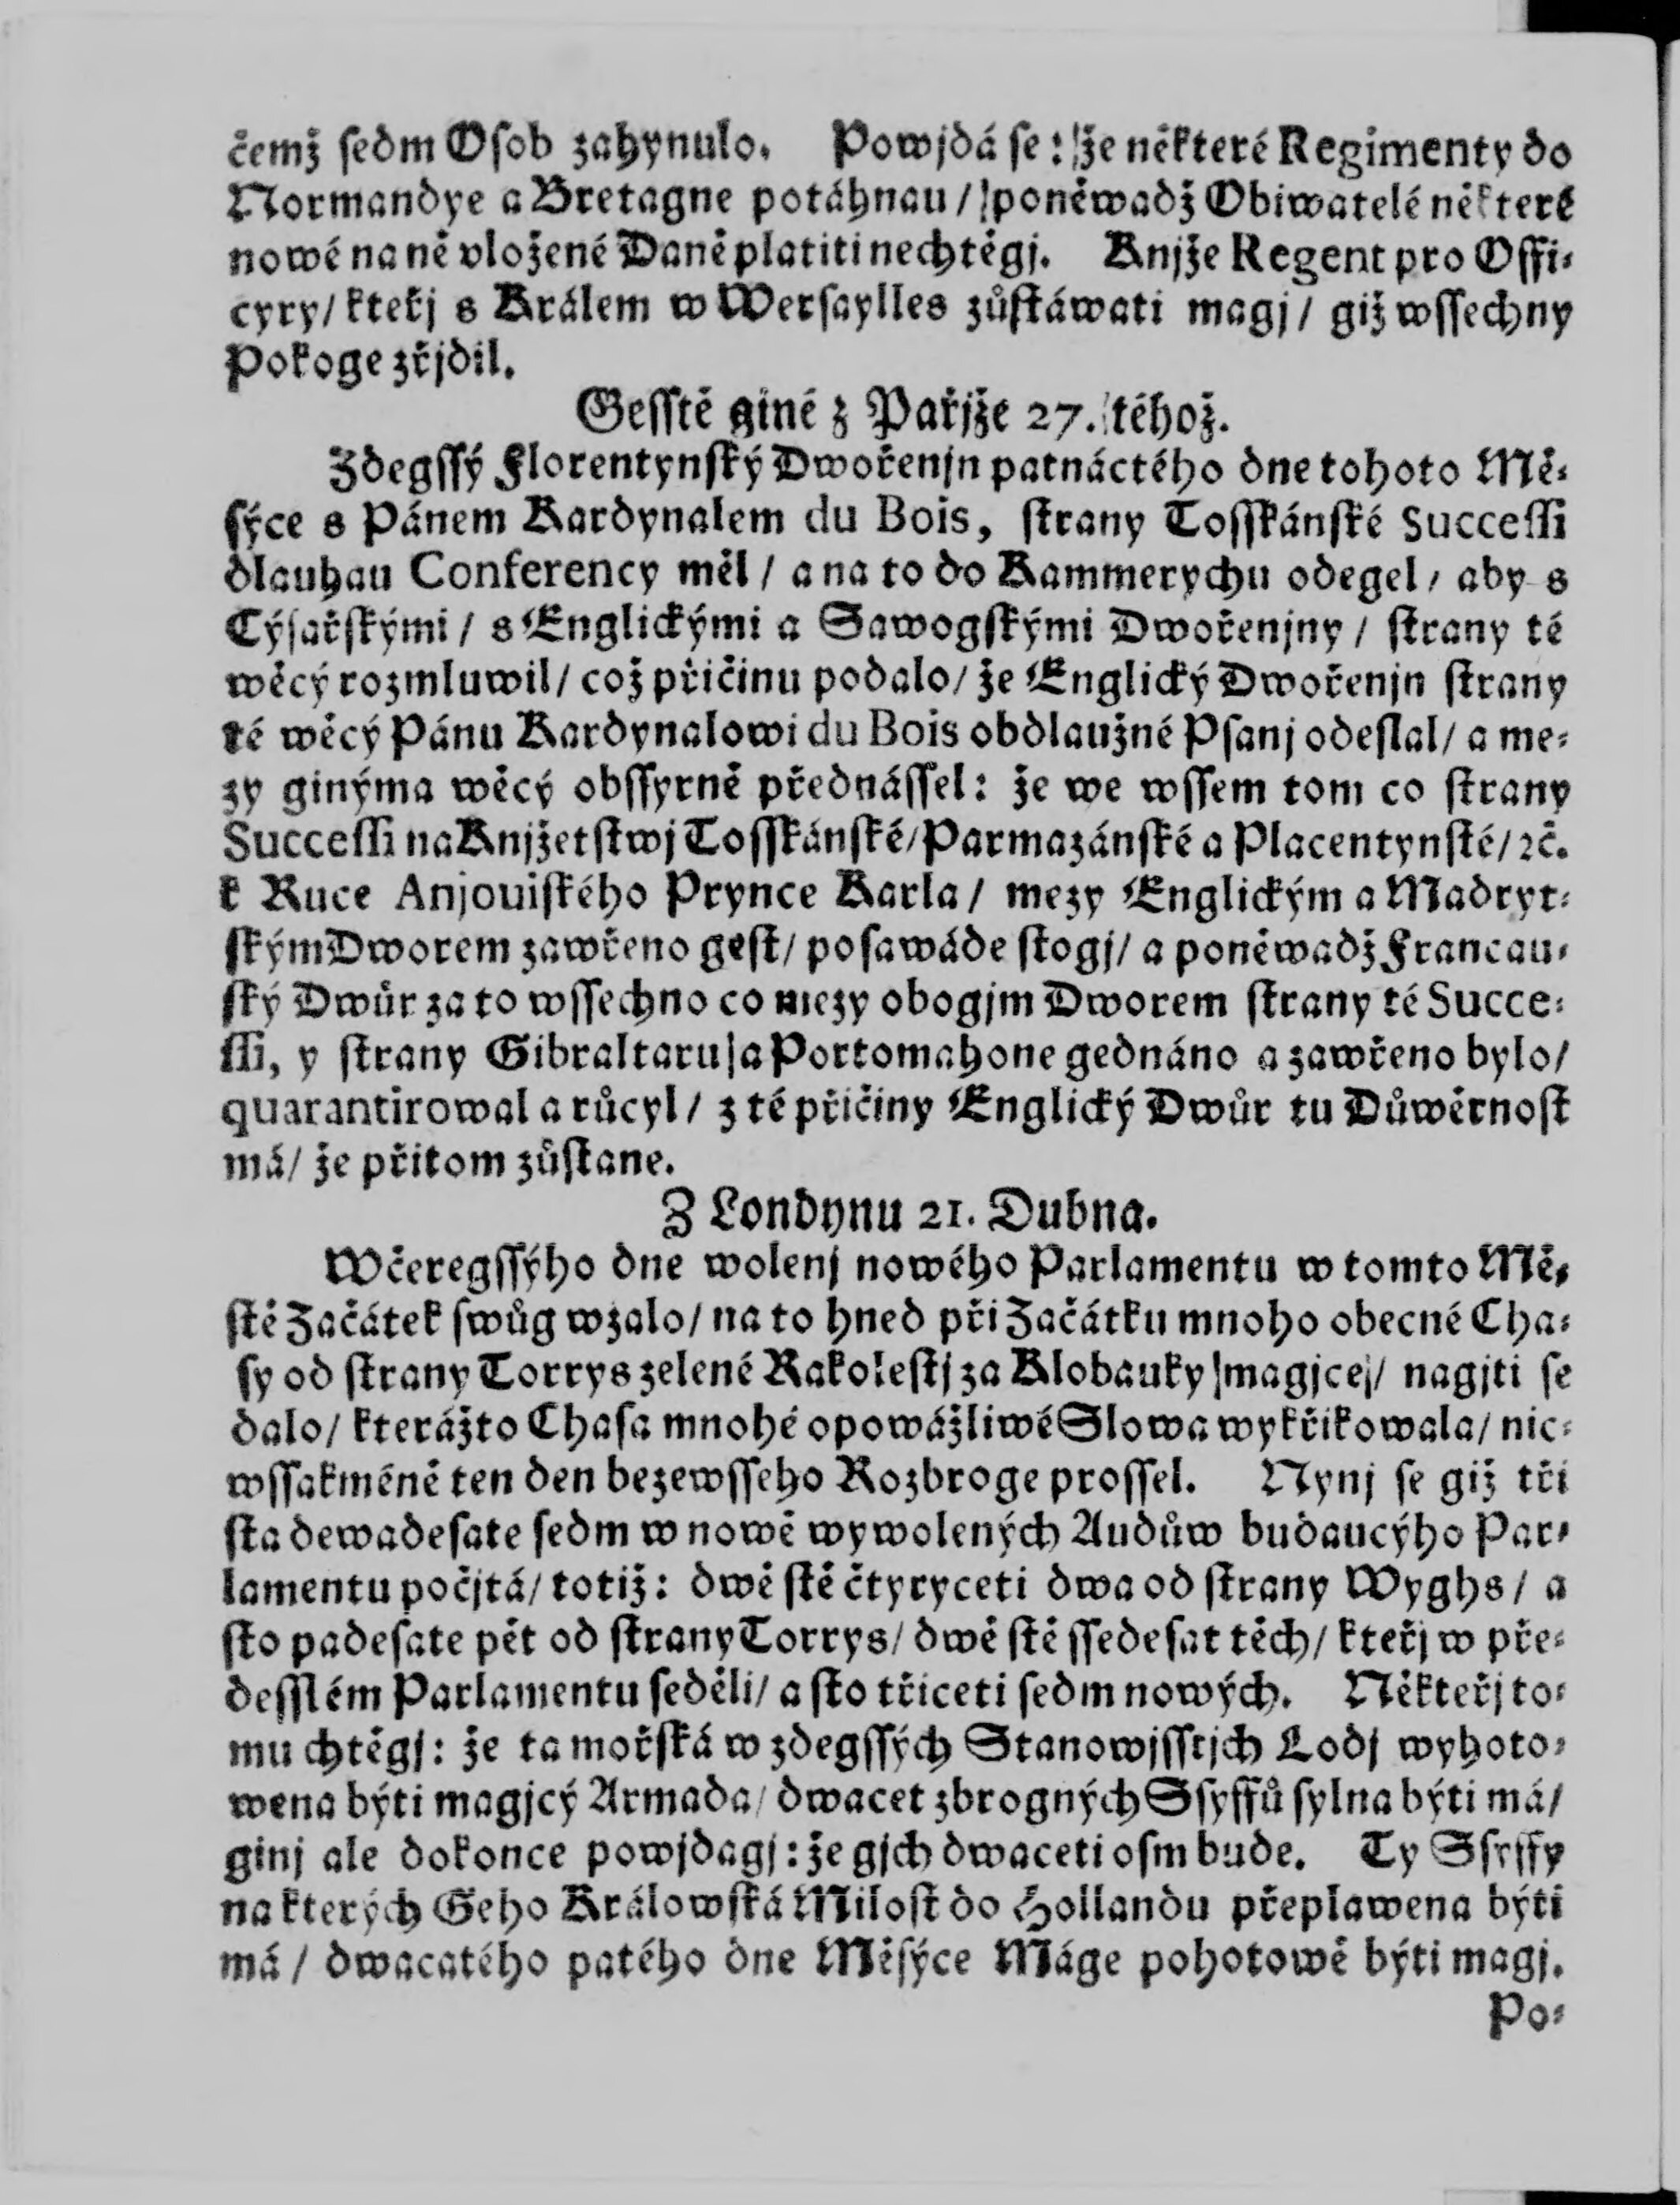 čemž ſedm Oſob zahynulo. Powjdá ſe: že některé Regimenty do
Normandye a Bretagne potáhnau / poněwadž Obiwatelé některé
nowé na ně vložené Daně platiti nechtěgj. Knjže Regent pro Offi-
cyry/ kteřj s Králem w Werſaylles zůſtáwati magj / giž wſſechny
Pokoge zřjdil.
Geſſtě giné z Pařjže 27. téhož.
Zdegſſý Florentynſký Dwořenjn patnáctého dne tohoto Mě-
ſýce s Pánem Kardynalem du Bois, ſtrany Toſſkánſké Succeſſi
dlauhau Conferency měl / a na to do Kammerychu odegel / aby s
Cýſařſkými / s Englickými a Sawogſkými Dwořenjny / ſtrany té
wěcý rozmluwil/ což přičinu podalo/ že Englický Dwořenjn ſtrany
té wěcý Pánu Kardynalowi du Bois obdlaužné Pſanj odeſlal/ a me-
zy ginýma wěcý obſſyrně přednáſſel: že we wſſem tom co ſtrany
Succeſſi na Knjžetſtwj Toſſkánſké/ Parmazánſké a Placentynſké/ ꝛč.
k Ruce Anjouiſkého Prynce Karla / mezy Englickým a Madryt-
ſkým Dworem zawřeno geſt/ po ſawáde ſtogj/ a poněwadž Francau-
ſký Dwůr za to wſſechno co mezy obogjm Dworem ſtrany té Succe-
ſſi, y ſtrany Gibraltaru a Portomahone gednáno a zawřeno bylo/
quarantirowal a růcyl / z té přičiny Englický Dwůr tu Důwěrnoſt
má/ že přitom zůſtane.
Z Londynu 21. Dubna.
Wčeregſſýho dne wolenj nowého Parlamentu w tomto Mě-
ſtě Začátek ſwůg wzalo/ na to hned při Začátku mnoho obecné Cha-
ſy od ſtrany Torrys zelené Rakoleſtj za Klobauky magjce/ nagjti ſe
dalo/ kterážto Chaſa mnohé opowážliwé Slowa wykřikowala/ nic-
wſſakméně ten den bezewſſeho Rozbroge proſſel. Nynj ſe giž tři
ſta dewadeſate ſedm w nowě wywolených Audůw budaucýho Par-
lamentu počjtá/ totiž: dwě ſtě čtyryceti dwa od ſtrany Wyghs / a
ſto padeſate pět od ſtrany Torrys/ dwě ſtě ſſedeſat těch/ kteřj w pře-
deſſlém Parlamentu ſeděli/ a ſto třiceti ſedm nowých. Někteřj to-
mu chtěgj: že ta mořſká w zdegſſých Stanowjſſtjch Lodj wyhoto-
wena býti magjcý Armada/ dwacet zbrogných Sſyffů ſylna býti má/
ginj ale dokonce powjdagj: že gjch dwaceti oſm bude. Ty Sſyffy
na kterých Geho Králowſká Miloſt do Hollandu přeplawena býti
má / dwacatého patého dne Měſýce Máge pohotowě býti magj.
Po-